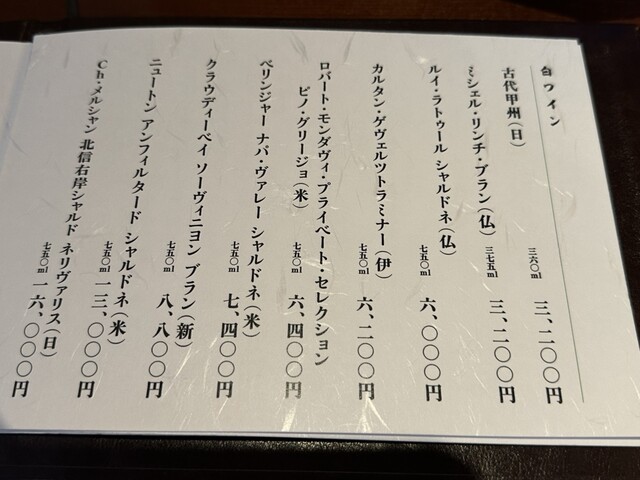 白ワイン
古代甲州（日）
三六〇ml 三、二〇〇円
ミシェル・リンチ・ブラン（仏）
三七五ml 三、二〇〇円
ルイ・ラトゥール シャルドネ（仏）
七五〇ml 六、〇〇〇円
カルタン・ゲヴェルツトラミナー（伊）
七五〇ml 六、二〇〇円
ロバート・モンダヴィ・プライベート・セレクション
ピノ・グリージョ（米）
七五〇ml 六、四〇〇円
ベリンジャー ナパ・ヴァレー シャルドネ（米）
七五〇ml 七、四〇〇円
クラウディーベイ ソーヴィニヨン ブラン（新）
七五〇ml 八、八〇〇円
ニュートン アンフィルタード シャルドネ（米）
七五〇ml 一三、〇〇〇円
Ch・メルシャン 北信右岸シャルド ネリヴァリス（日）
七五〇ml 一六、〇〇〇円